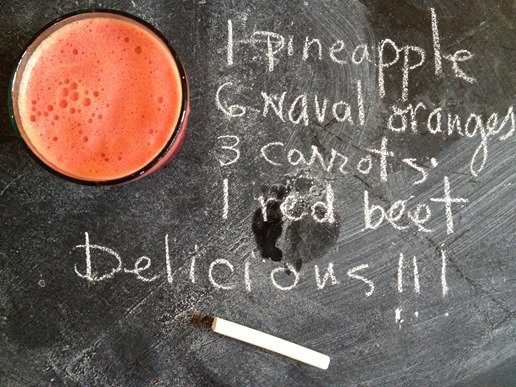 1 pineapple
6 naval oranges
3 carrots
1 red beet
Delicious!!!